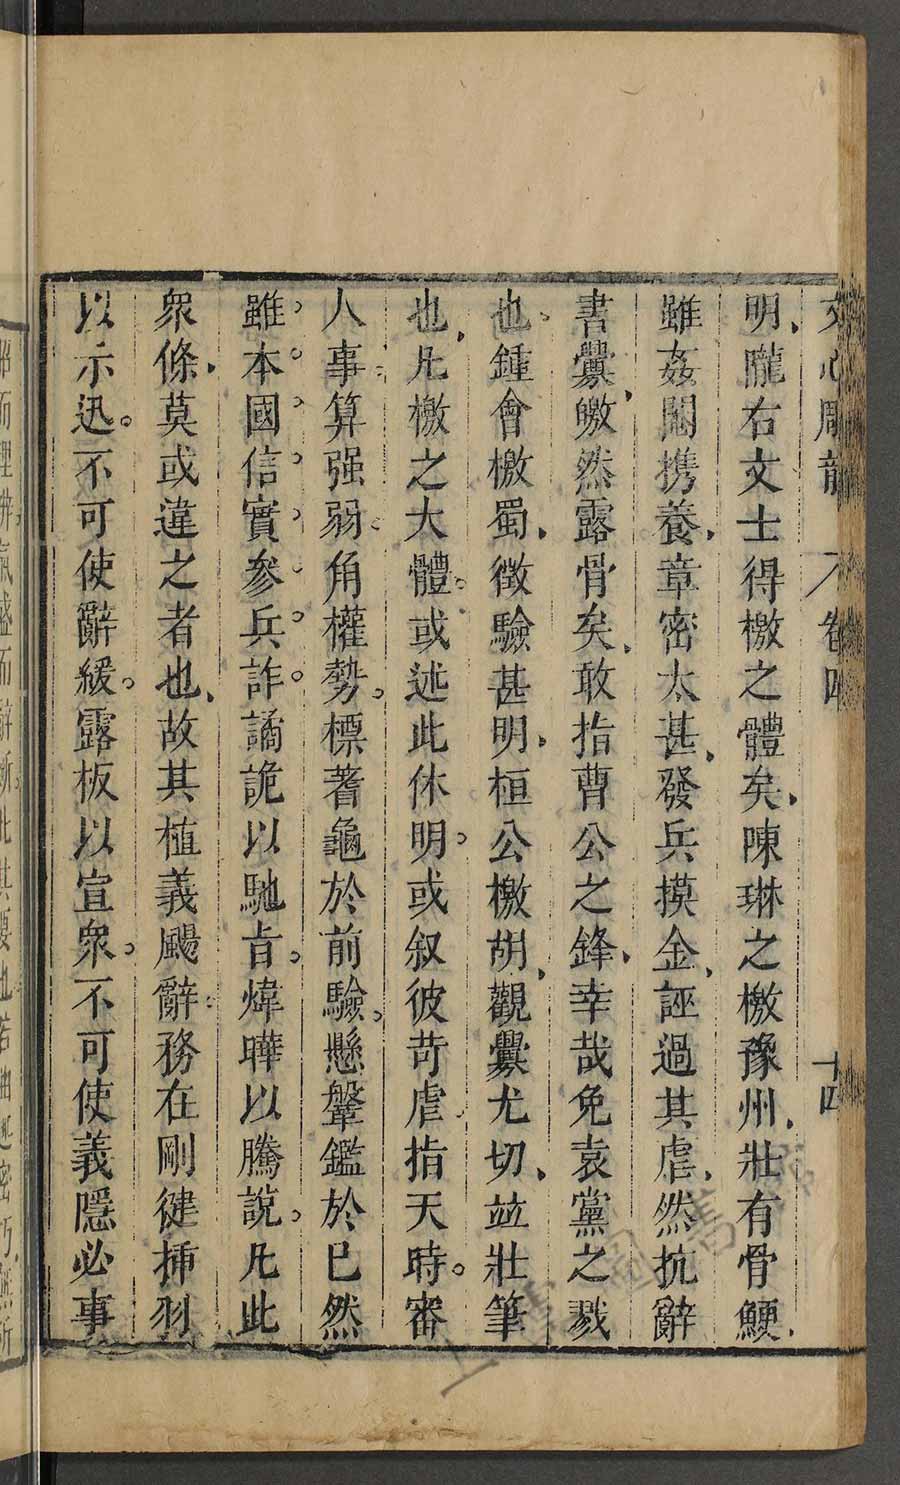 文心雕龍 卷四 十四
明隴右文士得檄之體矣陳琳之檄豫州壯有骨鯁
雖姦閹携養章密太甚發兵摸金誣過其虐然抗辭
書釁皦然露骨矣敢指曹公之鋒幸哉免袁黨之戮
也鍾會檄蜀徵驗甚明桓公檄胡觀釁尤切竝壯筆
也凡檄之大體或述此休明或叙彼苛虐指天時審
人事算强弱角權勢標蓍龜於前驗懸鞶鑑於已然
雖本國信實參兵詐譎詭以馳旨煒曄以騰說凡此
衆條莫或違之者也故其植義颺辭務在剛徤挿羽
以示迅不可使辭緩露板以宣衆不可使義隱必事